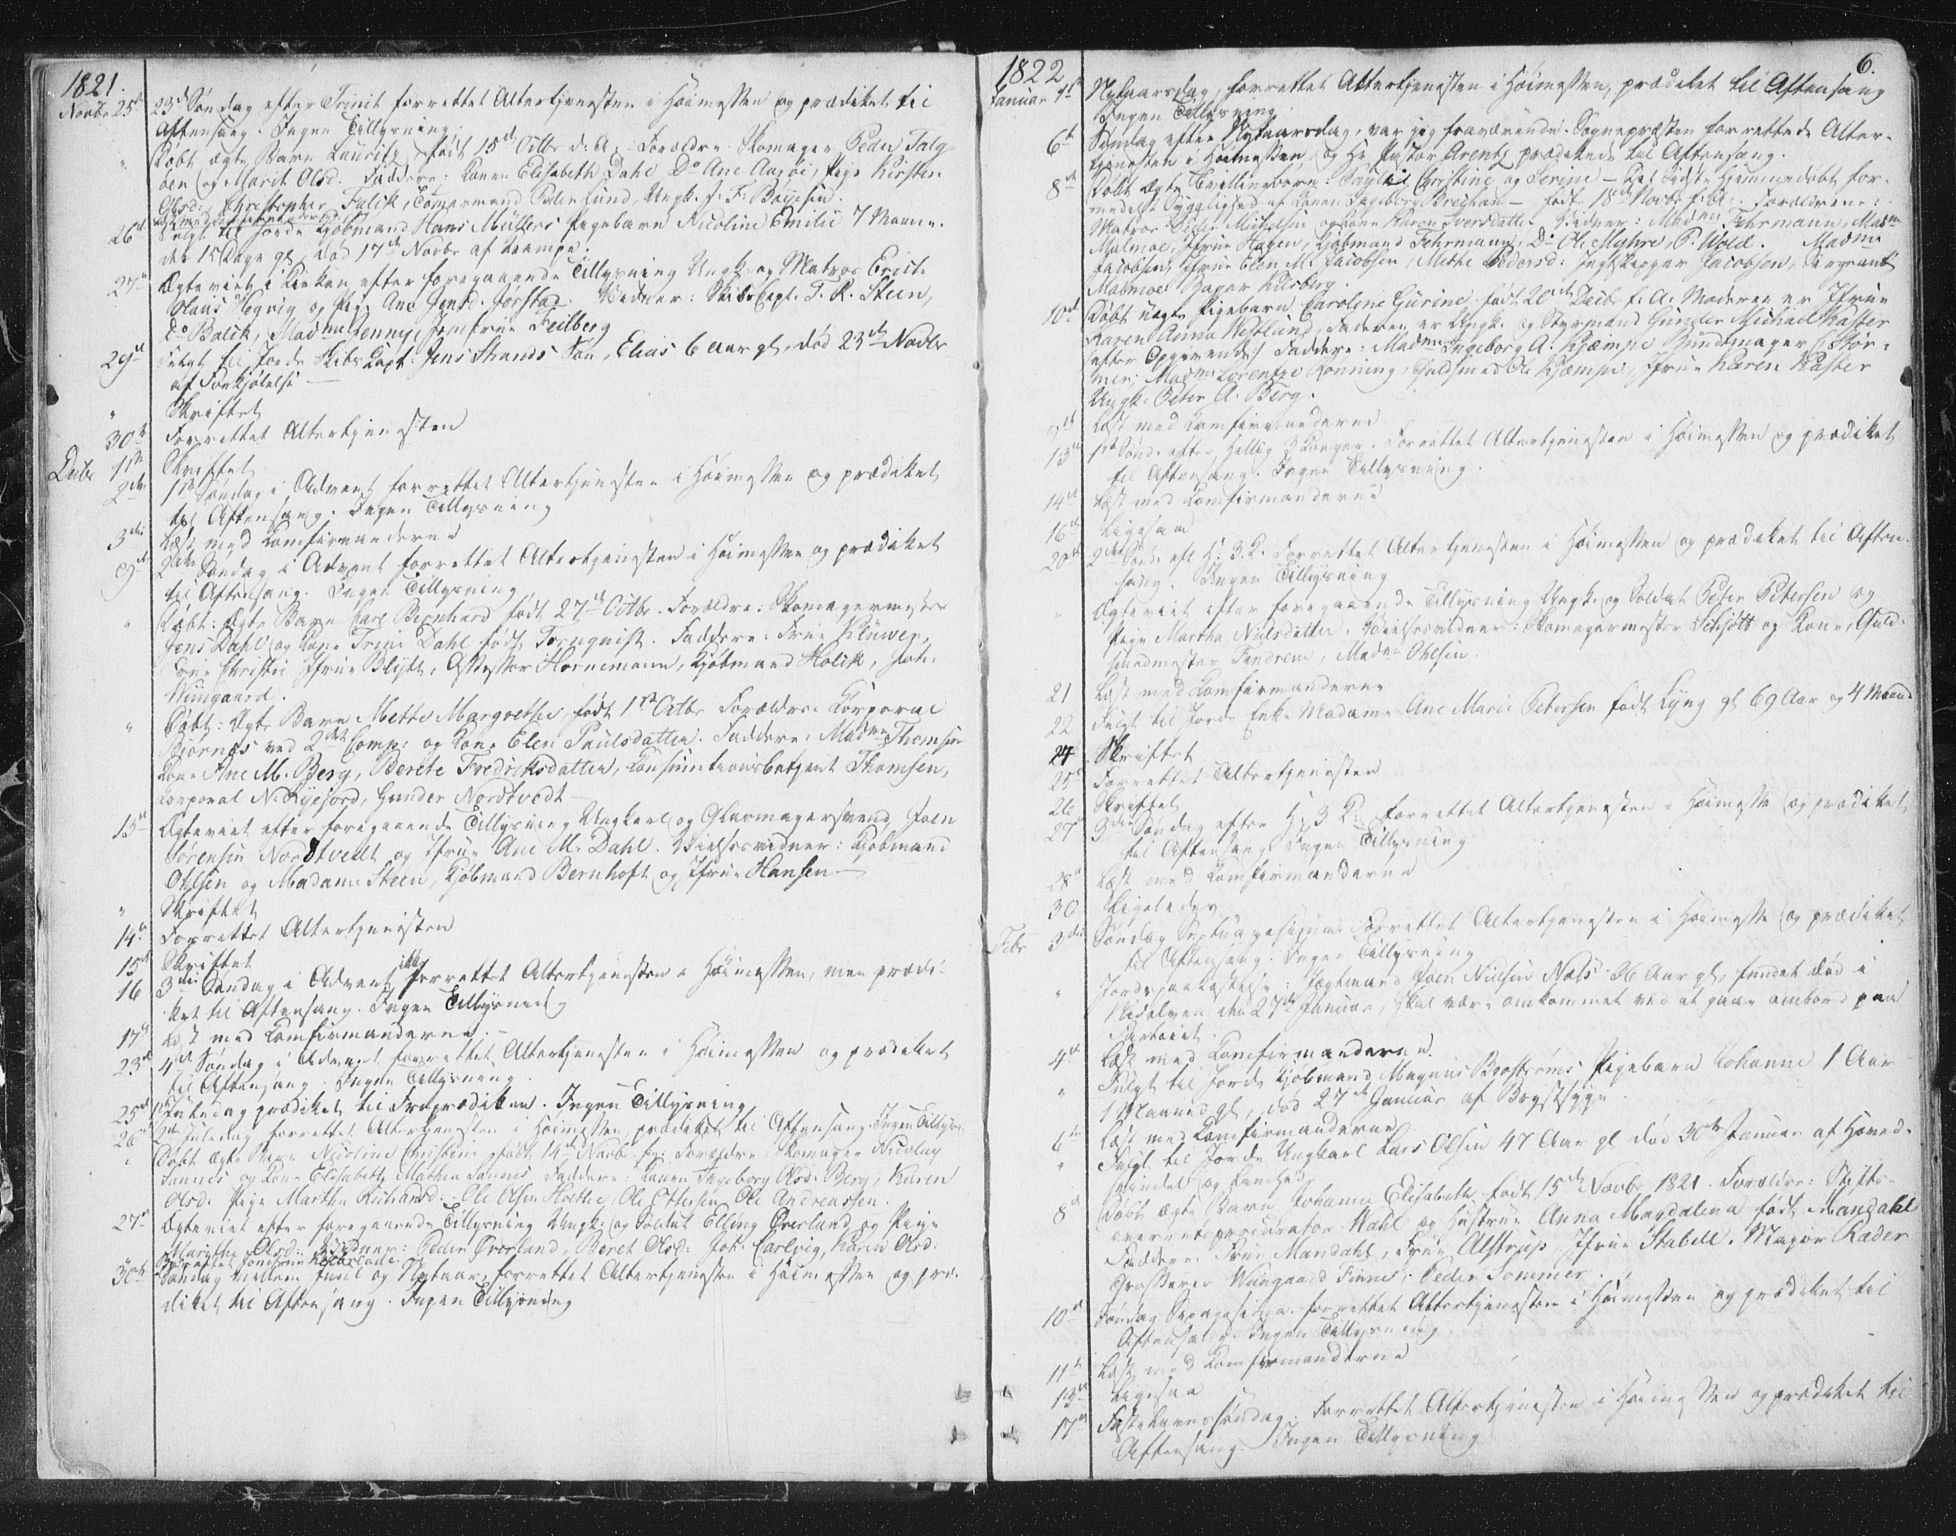 1821.
Novbr 25d 23d Søndag efter Trinit forrettet Altertjenesten i Høimessen og prædiket til
Aftensang. Ingen Tillysning.
" Døbt ægte Barn Lauritz, født 15d Octbr d: A; Forældre: Skomager Peder
og Marit Olsd. Faddere: Konen Elisabeth Dahl Do Ane Aasøi, Pige Kirsten
Olsd: Christopher Falck, Tømermand Peder Lund, Ungk. J. F. Boyesen.
26d Fulgt til Jorde Kjøbmand Hans Müllers Pigebarn Nicoline Emilie 7 Maane-
der 15 Dage gl, død 17d Novbr af Krampe.
27d Ægteviet i Kirken efter foregaaende Tillysning Ungk: og Matros Erich
Olaus Hegvig og Pige Ane Jensd. Forstad. Vidner: Skibs Capt. T. R. Steen,
Do Balck, Madme Jenny, Jomfrue Feilberg
29d Fulgt til Jorde Skibs Capt. Jens Strands Søn, Elias 6 Aar gl, død 23d Novbr
af Forkjølelse
" Skriftet
30d Forrettet Altertjenesten
Decbr 1ste Skriftet
2den 1ste Søndag i Advent forrettet Altertjenesten i Høimessen og prædiket
til Aftensang. Ingen Tillysning
3die Læst med Komfirmanderne
9d 2den Søndag i Advent forrettet Altertjenesten i Høimessen og prædiket
til Aftensang. Ingen Tillysning
" Døbt: Ægte Barn Carl Bernhard født 27d Octbr. Forældre: Skomagermester
Jens Dahl og Kone Trine Dahl født Tornquist. Faddere: Frue Klüwer,
Frue Christie Jfrue Blydt, Assessor Hornemann, Kjøbmand Holck, Joh:
Wungaard.
" Døbt: Ægte Barn Mette Margrethe, født 1ste Octbr Forældre: Korporal
Bjørnes ved 2det Comp: og Kone Elen Paulsdatter. Faddere: Madme Thomsen
Kone Ane M. Berg, Berete Fredriksdatter, Konsumtionsbetjent Thomsen,
Korporal N. Ryejord, Gunder Nordtvedt
13d Ægteviet efter foregaaende Tillysning Ungkarl og Glarmagersvend Joen
Sørensen Nordtvedt og Jfrue Ane M. Dahl. Vielsesvidner: Kjøbmand
Ohlsen og Madame Steen, Kjøbmand Bernhoft og Jfrue Hansen
" Skriftet
14d Forrettet Altertjenesten
15d Skriftet
16 3die Søndag i Advent ikke forrettet Altertjenesten i Høimessen, men prædi-
ket til Aftensang. Ingen Tillysning
17d Læst med Komfirmanderne.
23d 4d Søndag i Advent forrettet Altertjenesten i Høimessen og prædiket
til Aftensang. Ingen Tillysning.
25d Juledag prædiket til Froprædiken. Ingen Tillysning
26d 2d Juledag forrettet Altertjenesten i Høimessen, prædiket til Aftensang. Ingen Tillysn
" Døbt ægte Barn Nicoline Christine født 14d Novbr. Forældre: Skomager Nicolay
Sannes og Kone Elisabeth Mathea Sannes Faddere: Konen Ingeborg Olsd: Berg, Karen
Olsd: Pige Martha Richardd: Ole Olsen Ole Ottersen Ole Andreassen.
27d Ægteviet efter foregaaende Tillysning Ungk: og Soldat Elling Øverland og Pige
Marithe Olsd: Vidner: Peder Øverland, Beret Olsd: Joh: Carlvig, Karen Olsd.
30d Søndag mellem Juul og Nytaar, forrettet Altertjenesten i Høimessen og præ-
diket til Aftensang. Ingen Tillysning
6.
1822
Januar 1ste Nytaarsdag, forrettet Altertjenesten i Høimessen, prædiket til Aftensang
Ingen Tillysning.
6d Søndag efter Nytaarsdag, var jeg fraværende. Sognepræsten forrettede Alter-
tjenesten i Høimessen og Hr Pastor Arentz prædikede til Aftensang.
8d Døbt Ægte Tvillingebørn: Christine og Serene – hjemmedøbt for-
medelst Svaghed af Konen Ingeborg født 18d Novbr f: A. Forældrene:
Matros Peder Michelsen og Kone Karen Iversdatter. Faddere: Madme Fehrmann, Madme
Malmoe, Jfrue Hagen, Kjøbmand Fehrmann, Do Ol. Myhre, P. Wold. Madme
Jacobsen, Jfrue Elen M. Jacobsen, Mette Pedersd: Jagtskipper Jacobsen, Sergeant
Malmoe Bager Kilsberg.
10d Døbt uægte Pigebarn Caroline Gurine født 20d Decbr f: A: Moderen er Jfrue
Karen Anna Westlund, Faderen er Ungk. og Styrmand Gunder Michael Kaster
efter Opgivende. Faddere: Madme Ingeborg A. Kjæmpe Bundtmager Stør-
mer, Madme Lorentze Rønning, Guldsmed Ole Kjæmpe, Jfrue Karen Kaster
Ungk. Peter A. Berg.
Læst med Komfirmanderne
13d 1ste Sønd: efter Hellig 3 Konger. Forrettet Altertjenesten i Høimessen og prædiket
til Aftensang. Ingen Tillysning.
14d Læst med Komfirmanderne
16d Ligesaa
20d 2den Sønd: eft H: 3 K. Forrettet Altertjenesten i Høimessen og prædiket til Aften-
sang. Ingen Tillysning
" Ægteviet efter foregaaende Tillysning Ungk. og Soldat Peter Petersen og
Pige Martha Nielsdatter. Vielsesvidner: Skomagermester Schjøtt og Kone, Guld-
smedmester Tendrem, Madme Ohlsen.
21 Læst med Komfirmanderne
22 Fulgt til Jorde Enke Madame Ane Marie Petersen født Lyng gl 69 Aar og 4 Maand
24 Skriftet
25d Forrettet Altertjenesten
26 Skriftet
27d 3die Søndag efter H: 3 K: forrettet Altertjenesten i Høimesse og prædiket
til Aftensang. Ingen Tillysning
28d Læst med Komfirmanderne
30 Ligeledes
Febr 3die Søndag Septuagesima. Forrettet Altertjenesten i Høimesse og prædiket
til Aftensang. Ingen Tillysning
" Jordspaakastelse: Joen Nielsen Næss 36 Aar gl, fundet død i
Nidelven den 27d Januar, skal være omkommet ved at gaae ombord paa
Fartøiet.
4d Læst med Komfirmanderne.
" Fulgt til Jorde Kjøbmand Magnus Brostrøms Pigebarn Johanne 1 Aar
1 Maaned gl, død 27d Januar af Brystsyge.
6d Læst med Komfirmanderne
" Fulgt til Jorde Ungkarl Lars Olsen 47 Aar gl død 30te Januar af Hoved-
8d Døbt ægte Barn Johanna Elisabeth født 15d Novbr 1821. Forældre: Stifts-
overretsprocurator Wahl og Hustrue Anna Magdalena født Mandahl
Faddere: Frue Mandahl, Frue Alstrup, Jfrue Stabell, Major Ræder
Grosserer Wungaard Finne. Peder Sommer
10d Søndag Sexagesima. forrettet Altertjenesten i Høimessen og prædiket til
Aftensang. Ingen Tillysning
11d Læst med Komfirmanderne
13d Ligesaa
17d Fastelavnssøndag. Forrettet Altertjenesten i Høimessen og prædiket til
Aftensang. Ingen Tillysning